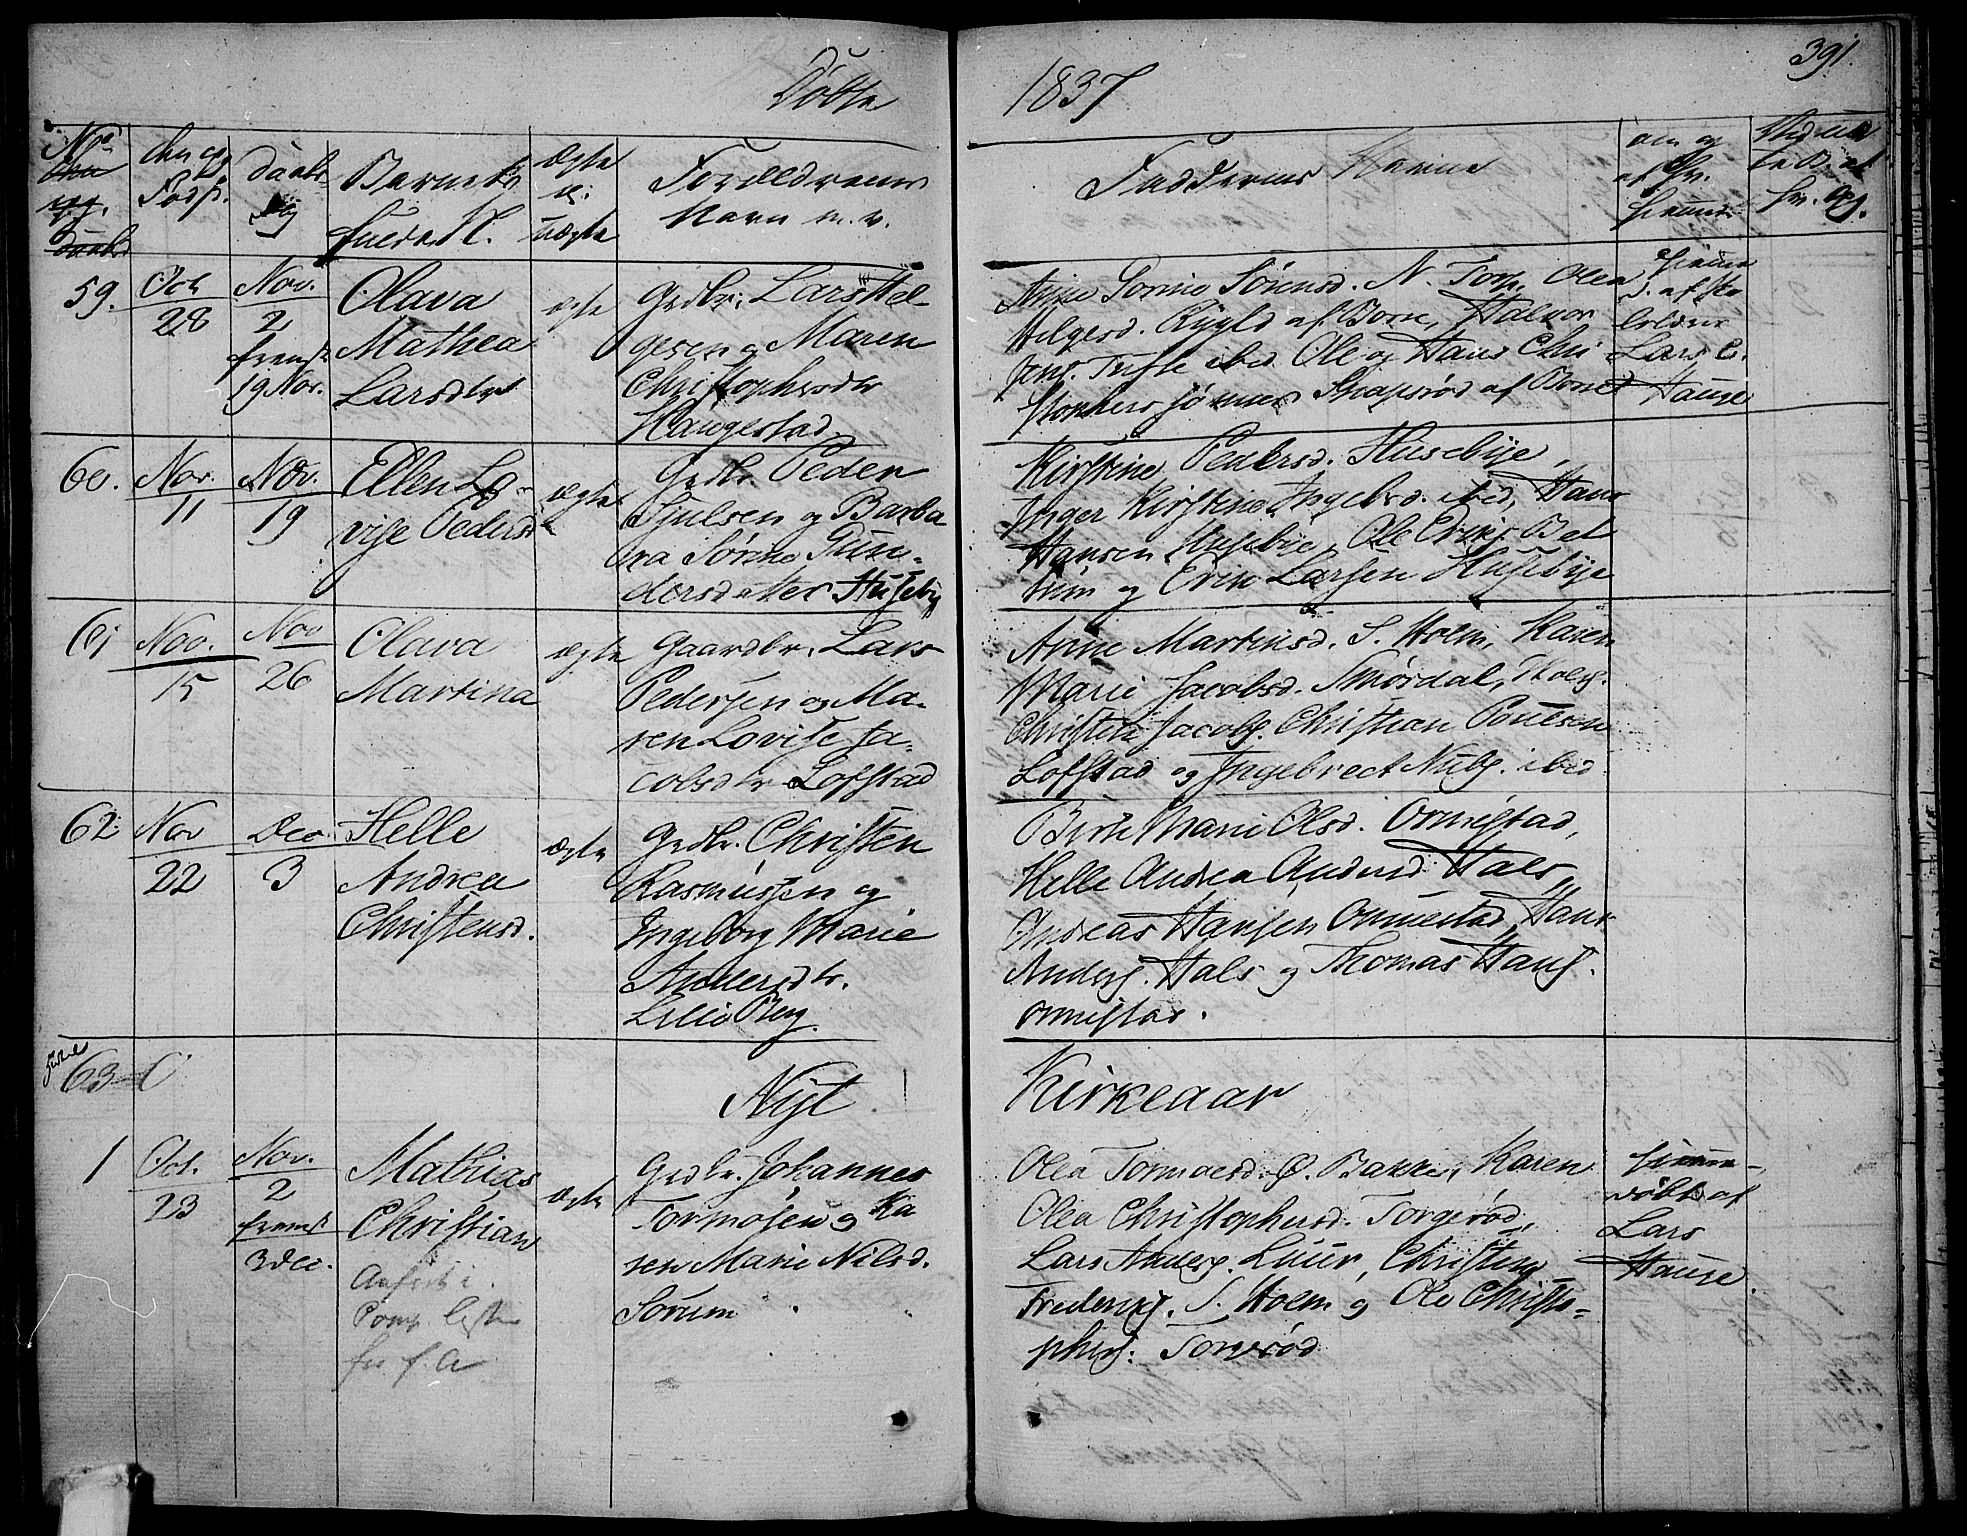 Döbte
1837
391
No
Daabs
Dag
Barnets
fulde N.
ægte
el.
uægte
Forældrenes
Navn m. v.
Faddernes Navne
om og
af hv.
59. Oct 28 Nov. 2 fremst. 19 Nov.
Olava
Mathea
Larsdtr
ægte
Grdbr. Lars Hel
gesen og Maren
Christophersdtr
Haugestad
Anne Torine Sörensd. N. Torp, Olea
Helgesd. Rygld af Born, Halvor
Jens. Tufte ibid Ole og Hans Chri
stophers sönner Skapsröd af Borre
Lars C.
Hauge
60. Nov. 11 Nov. 19
Ellen Lo-
vise Pedersd
ægte
Grdbr Peder
Hjulsen og Barba
ra Sörine Gun-
dersdatter Huseby
Kirstine Pedersd. Husebye,
Inger Kirstine Ingebrd. ibid, Hans
Hansen Husebye, Ole Erins. Bet
tum og Erin Larsen Husebye
61 Nov. 15 Nov 26
Olava
Martina
ægte
Gaardbr. Lars
Pedersen og Ma-
ren Lovise Ja-
cobsdtr Lofstad
Anne Martinsd. S. Holm, Karen
Marie Jacobsd. Smördal,
Christen Jacobs. Christian Poulsen
Lofstad og Ingebrect Nubs. ibid
62 Nov 22 Dec. 3
Helle
Andrea
Christensd.
ægte
Grdbr. Christen
Rasmussen og
Ingeborg Marie
Andersdtr.
Lille Berg.
Birte Marie Olsd. Ormestad,
Helle Andrea Andersd Hals,
Andreas Hansen Ormestad, Hans
Anders. Hals og Thomas Hans.
Ormestad.
63
Nyt
Kirkeaar
1 Oct. 23 Nov. 2 fremst 3 Dec.
Mathias
Christian
ægte
Grdbr. Johannes
Tormosen og Ka
ren Marie Nilsd.
Sörum
Olea Tormoesd. Ö. Bakke, Karen
Olea Christophersd. Torgeröd,
Lars Anders. Luur, Christen
Frederiks. S. Holm og Ole Christo-
phers. Torgeröd
hjemme-
döbt af
Lars
Hauge